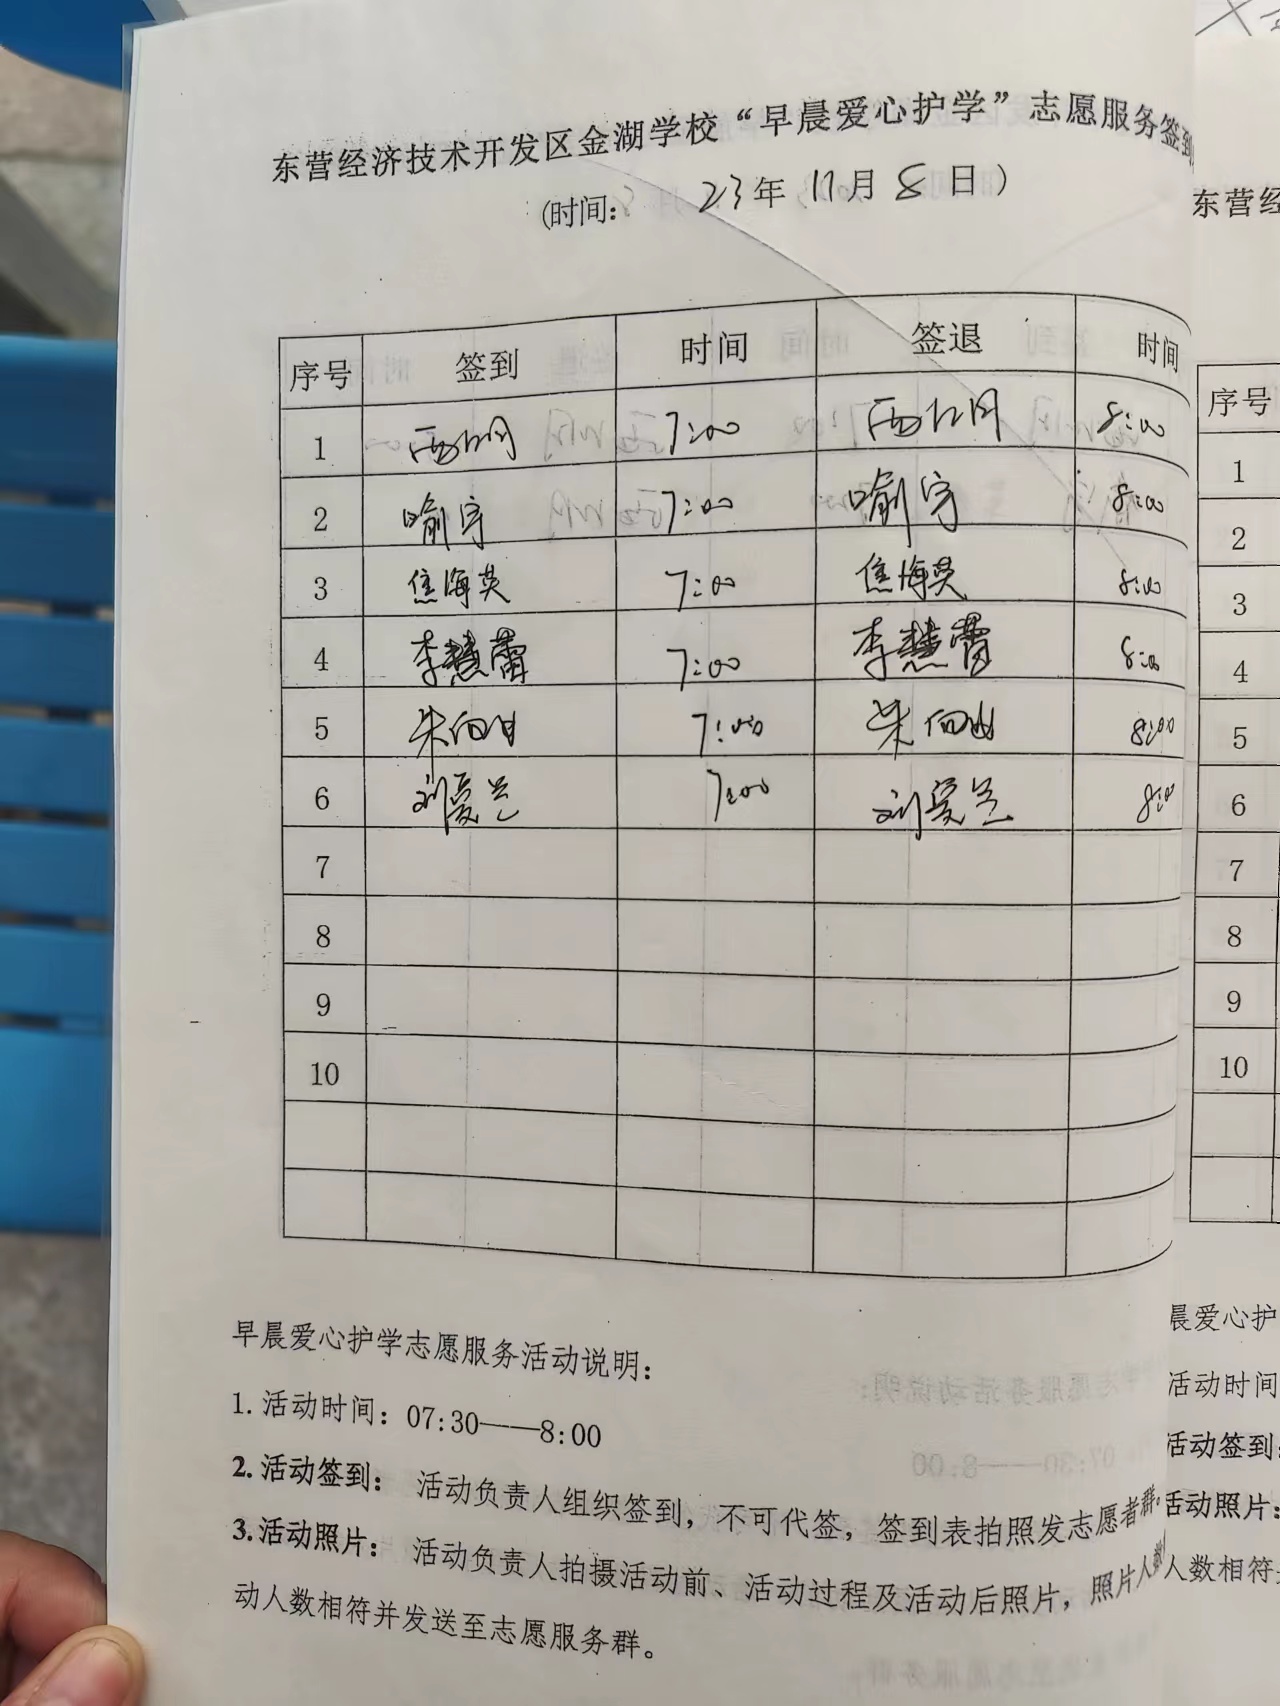 东营经济技术开发区金湖学校“早晨爱心护学”志愿服务签到
(时间: 23年11月8日)
东营经
序号 签到 时间 签退 时间
1 7:00 8:00
2 喻宇 7:00 喻宇 8:00
3 焦海英 7:00 焦海英 8:00
4 李慧蕾 7:00 李慧蕾 8:00
5 朱向 7:00 朱向 8:00
6 刘爱兰 7:00 刘爱兰 8:00
7
8
9
10
序号
1
2
3
4
5
6
7
8
9
10
早晨爱心护学志愿服务活动说明:
1. 活动时间: 07:30——8:00
2. 活动签到: 活动负责人组织签到, 不可代签, 签到表拍照发志愿者群。
3. 活动照片: 活动负责人拍摄活动前、活动过程及活动后照片, 照片人数
动人数相符并发送至志愿服务群。
晨爱心护
活动时间
活动签到:
活动照片:
人数相符